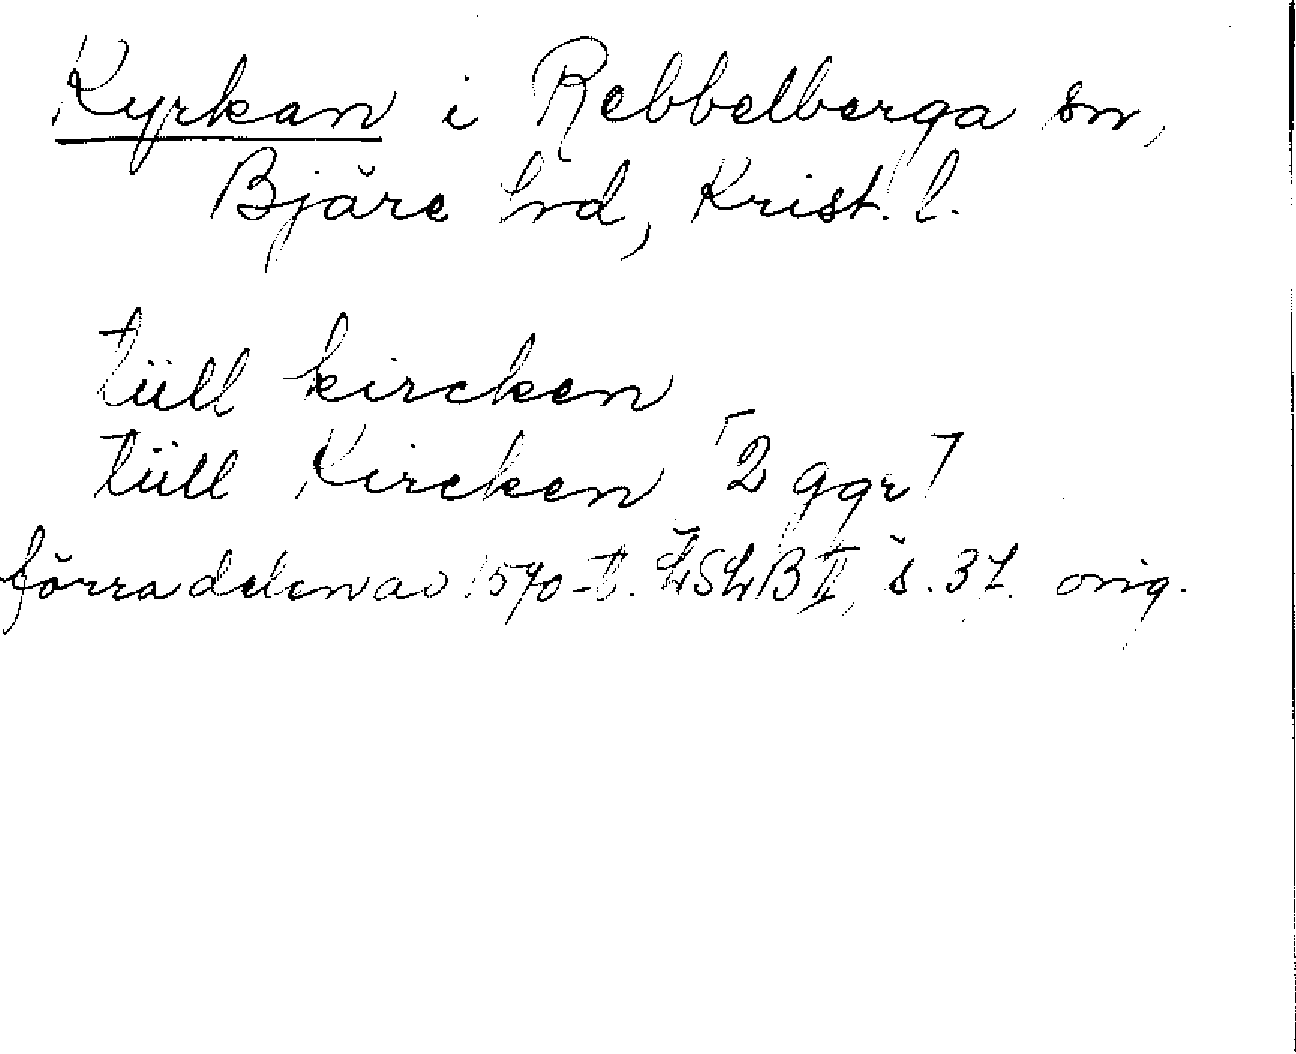 Kyrkan i Rebbelberga sn,
Bjäre hrd, Krist. l.
tüll kircken
tüll Kircken [2 ggr]
förra delen av 1570-t. LSLB II, s. 37. orig.